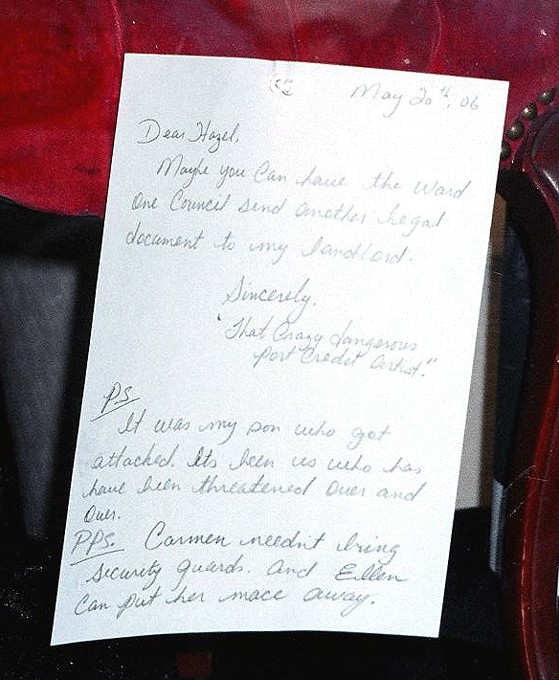 May 20th, 06
Dear Hazel,
Maybe you Can have the Ward
One Council send another legal
document to my landlord.
Sincerely,
"That Crazy dangerous
Port Credit Artist."
PS
It was my son who got
attacked. Its been us who has
have been threatened over and
over.
PPS. Carmen needn't bring
security guards. And Ellen
Can put her mace away.